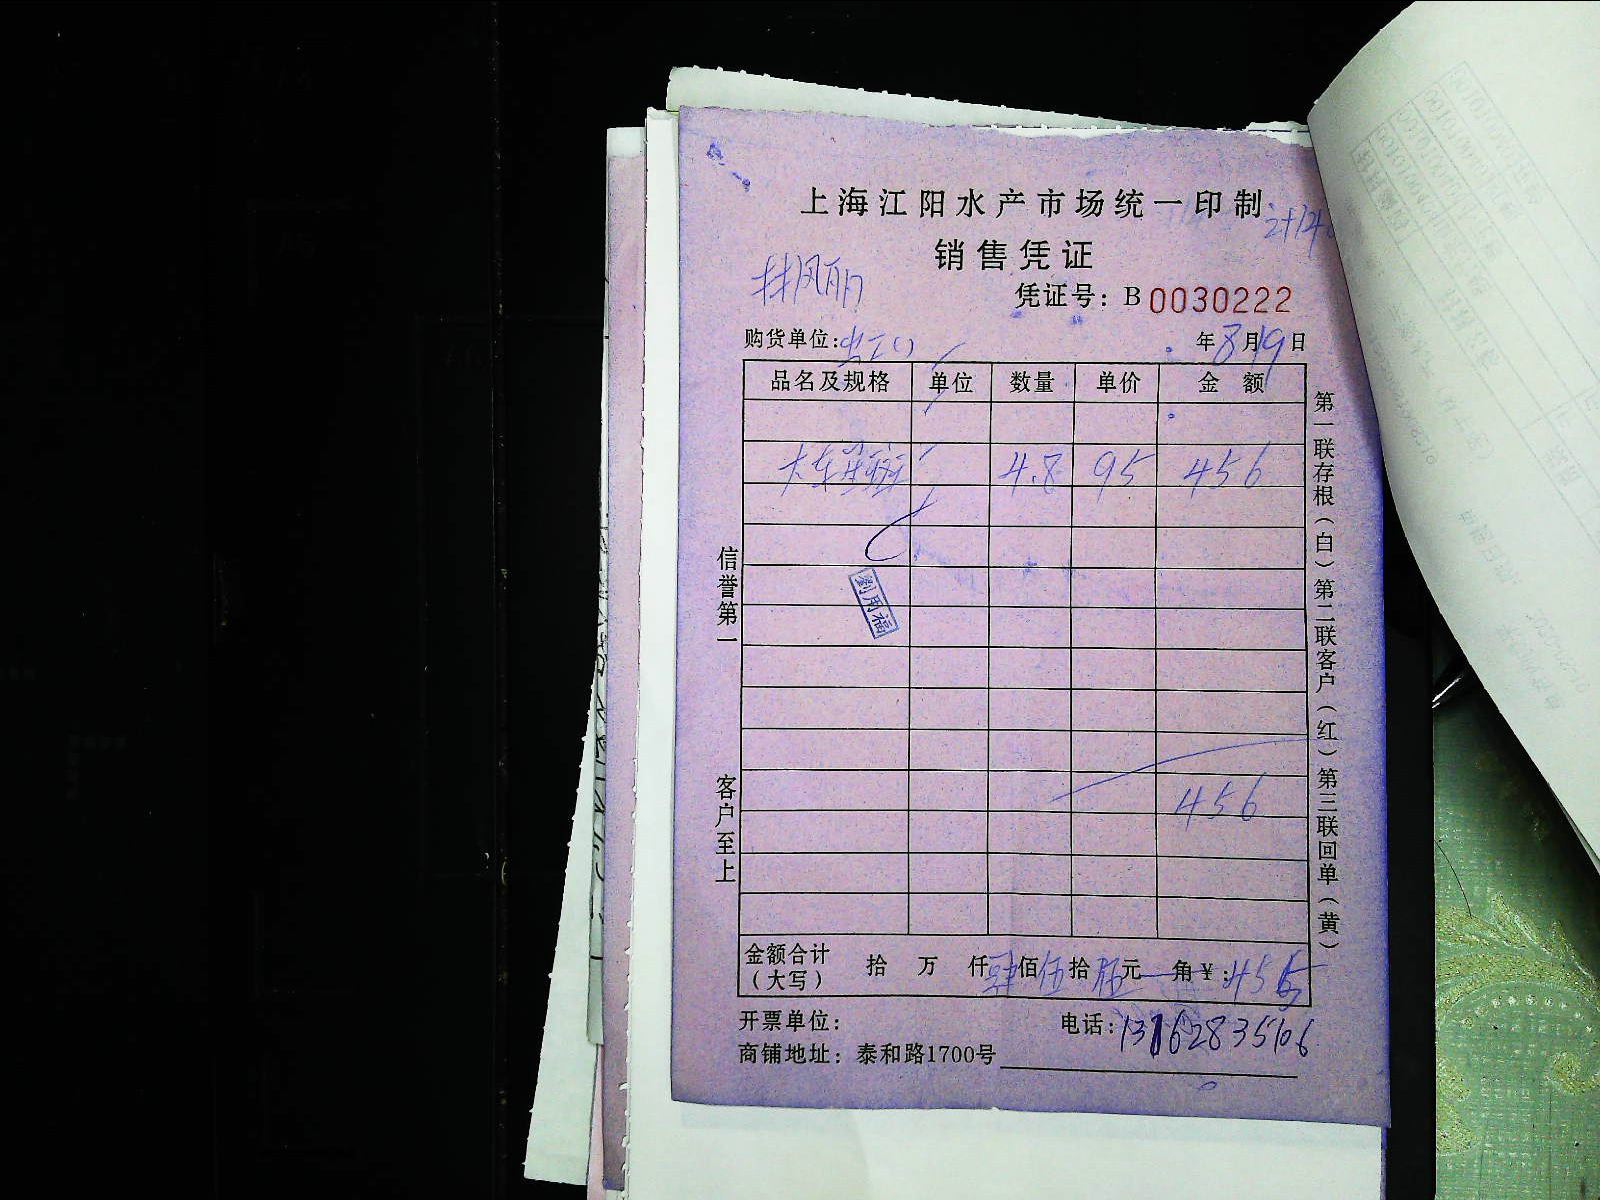 上海江阳水产市场统一印制
销售凭证
林凤丽
凭证号：B 0030222
购货单位： 年8月19日
品名及规格 单位 数量 单价 金额
4.8 95 456
劉用福
456
信誉第一
客户至上
第一联存根（白）第二联客户（红）第三联回单（黄）
金额合计（大写） 拾 万 仟肆佰伍拾伍元 角￥：455
开票单位： 电话：13162835106
商铺地址：泰和路1700号